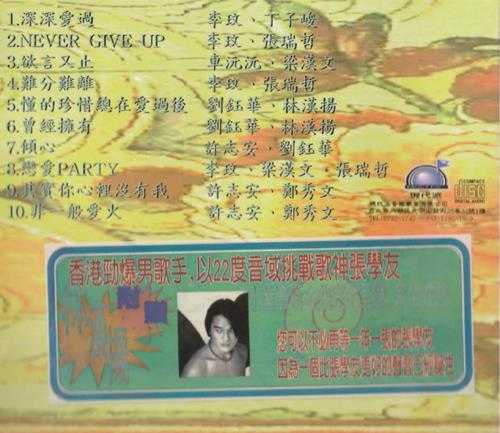 1.深深愛過 李玟、丁子峻
2.NEVER GIVE UP 李玟、張瑞哲
3.欲言又止 車沅沅、梁漢文
4.難分難離 李玟、張瑞哲
5.懂的珍惜總在愛過後 劉鈺華、林漢揚
6.曾經擁有 劉鈺華、林漢揚
7.傾心 許志安、劉鈺華
8.戀愛PARTY 李玟、梁漢文、張瑞哲
9.其實你心裡沒有我 許志安、鄭秀文
10.非一般愛火 許志安、鄭秀文
現代派
COMPACT
disc
DIGITAL AUDIO
香港勁爆男歌手.以22度音域挑戰歌神張學友
您可以不必再等一年一張的張學友
因為一個比張學友更好的